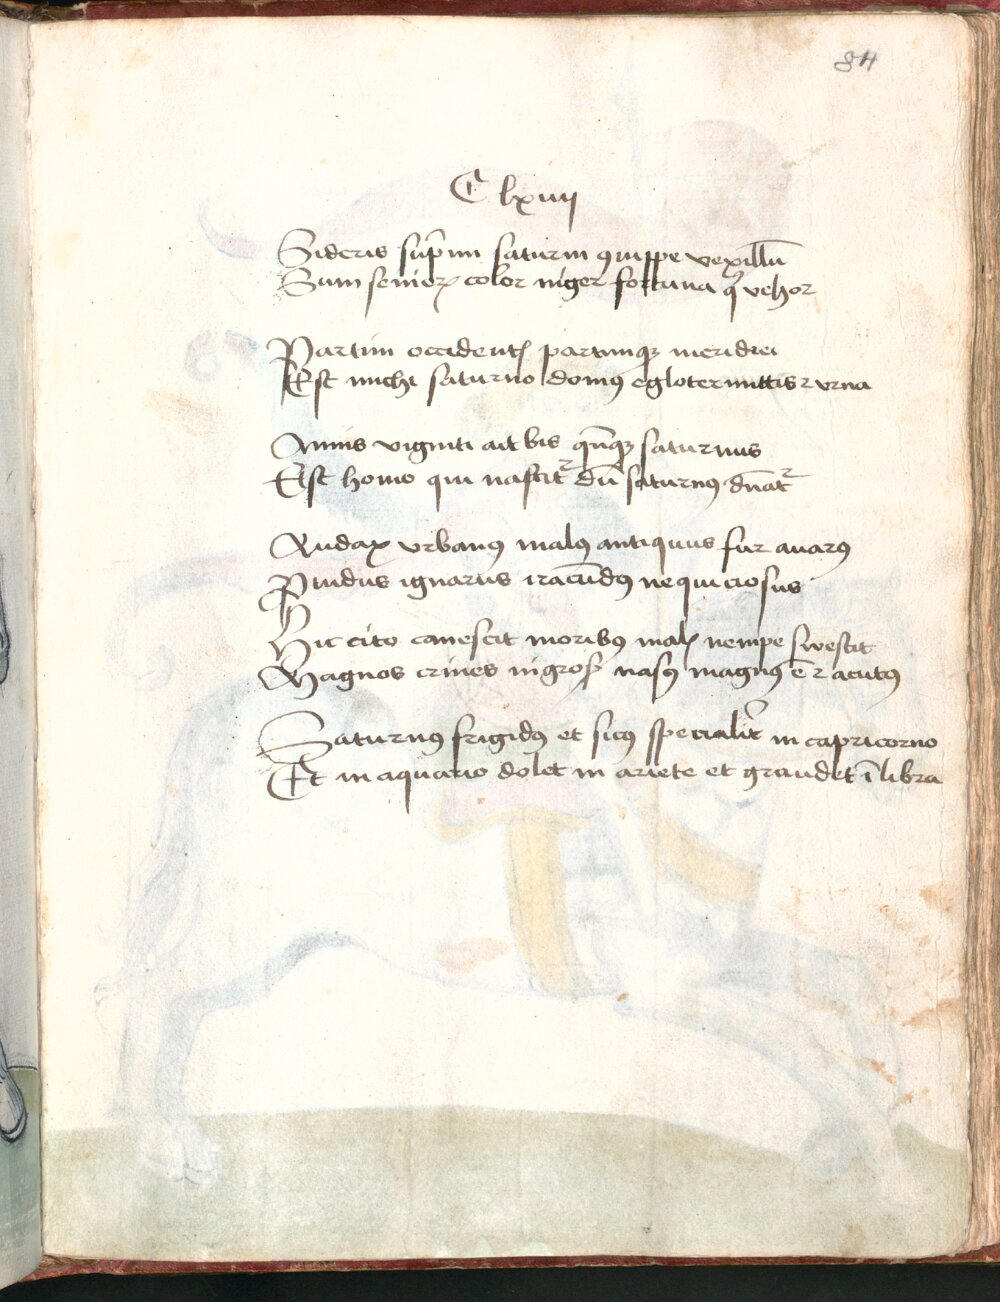 84
C lxiiij
Sideris sup̄mi saturni ꝯuippe vexillū
Sum senioꝝ color niger fortuna q̄ vehor
Partim occidentꝭ partimqꝫ meridiei
Est michi saturno domꝰ egloter mittis ⁊ vrna
Annis viginti ait bis qn̄qꝫ saturnus
Est homo qui nascitᷣ dū saturnꝰ dn̄atᷣ
Audax vrbanꝰ malꝰ antiquus fur auarꝰ
Pfidus ignarus iracūdꝰ nequiciosus
Hic cito canescit moribꝰ malꝭ nempe swescit
Magnos crines nigrosqꝫ nasꝰ magnꝰ ē ⁊ acutꝰ
Saturnꝰ frigidꝰ et sicꝰ specialit̄ in capricorno
Et in aquario dolet in ariete et graudet ī libra